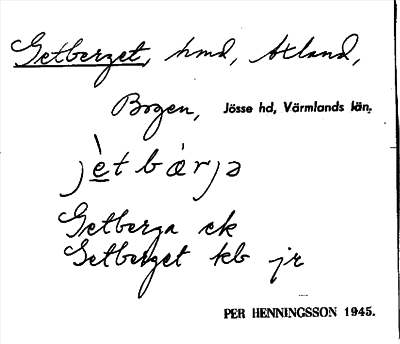 Getberget, hmd, Axland,
Bogen, Jösse hd, Värmlands län.
jètbárjə
Getberga ek
Getberget kb jr
PER HENNINGSSON 1945.